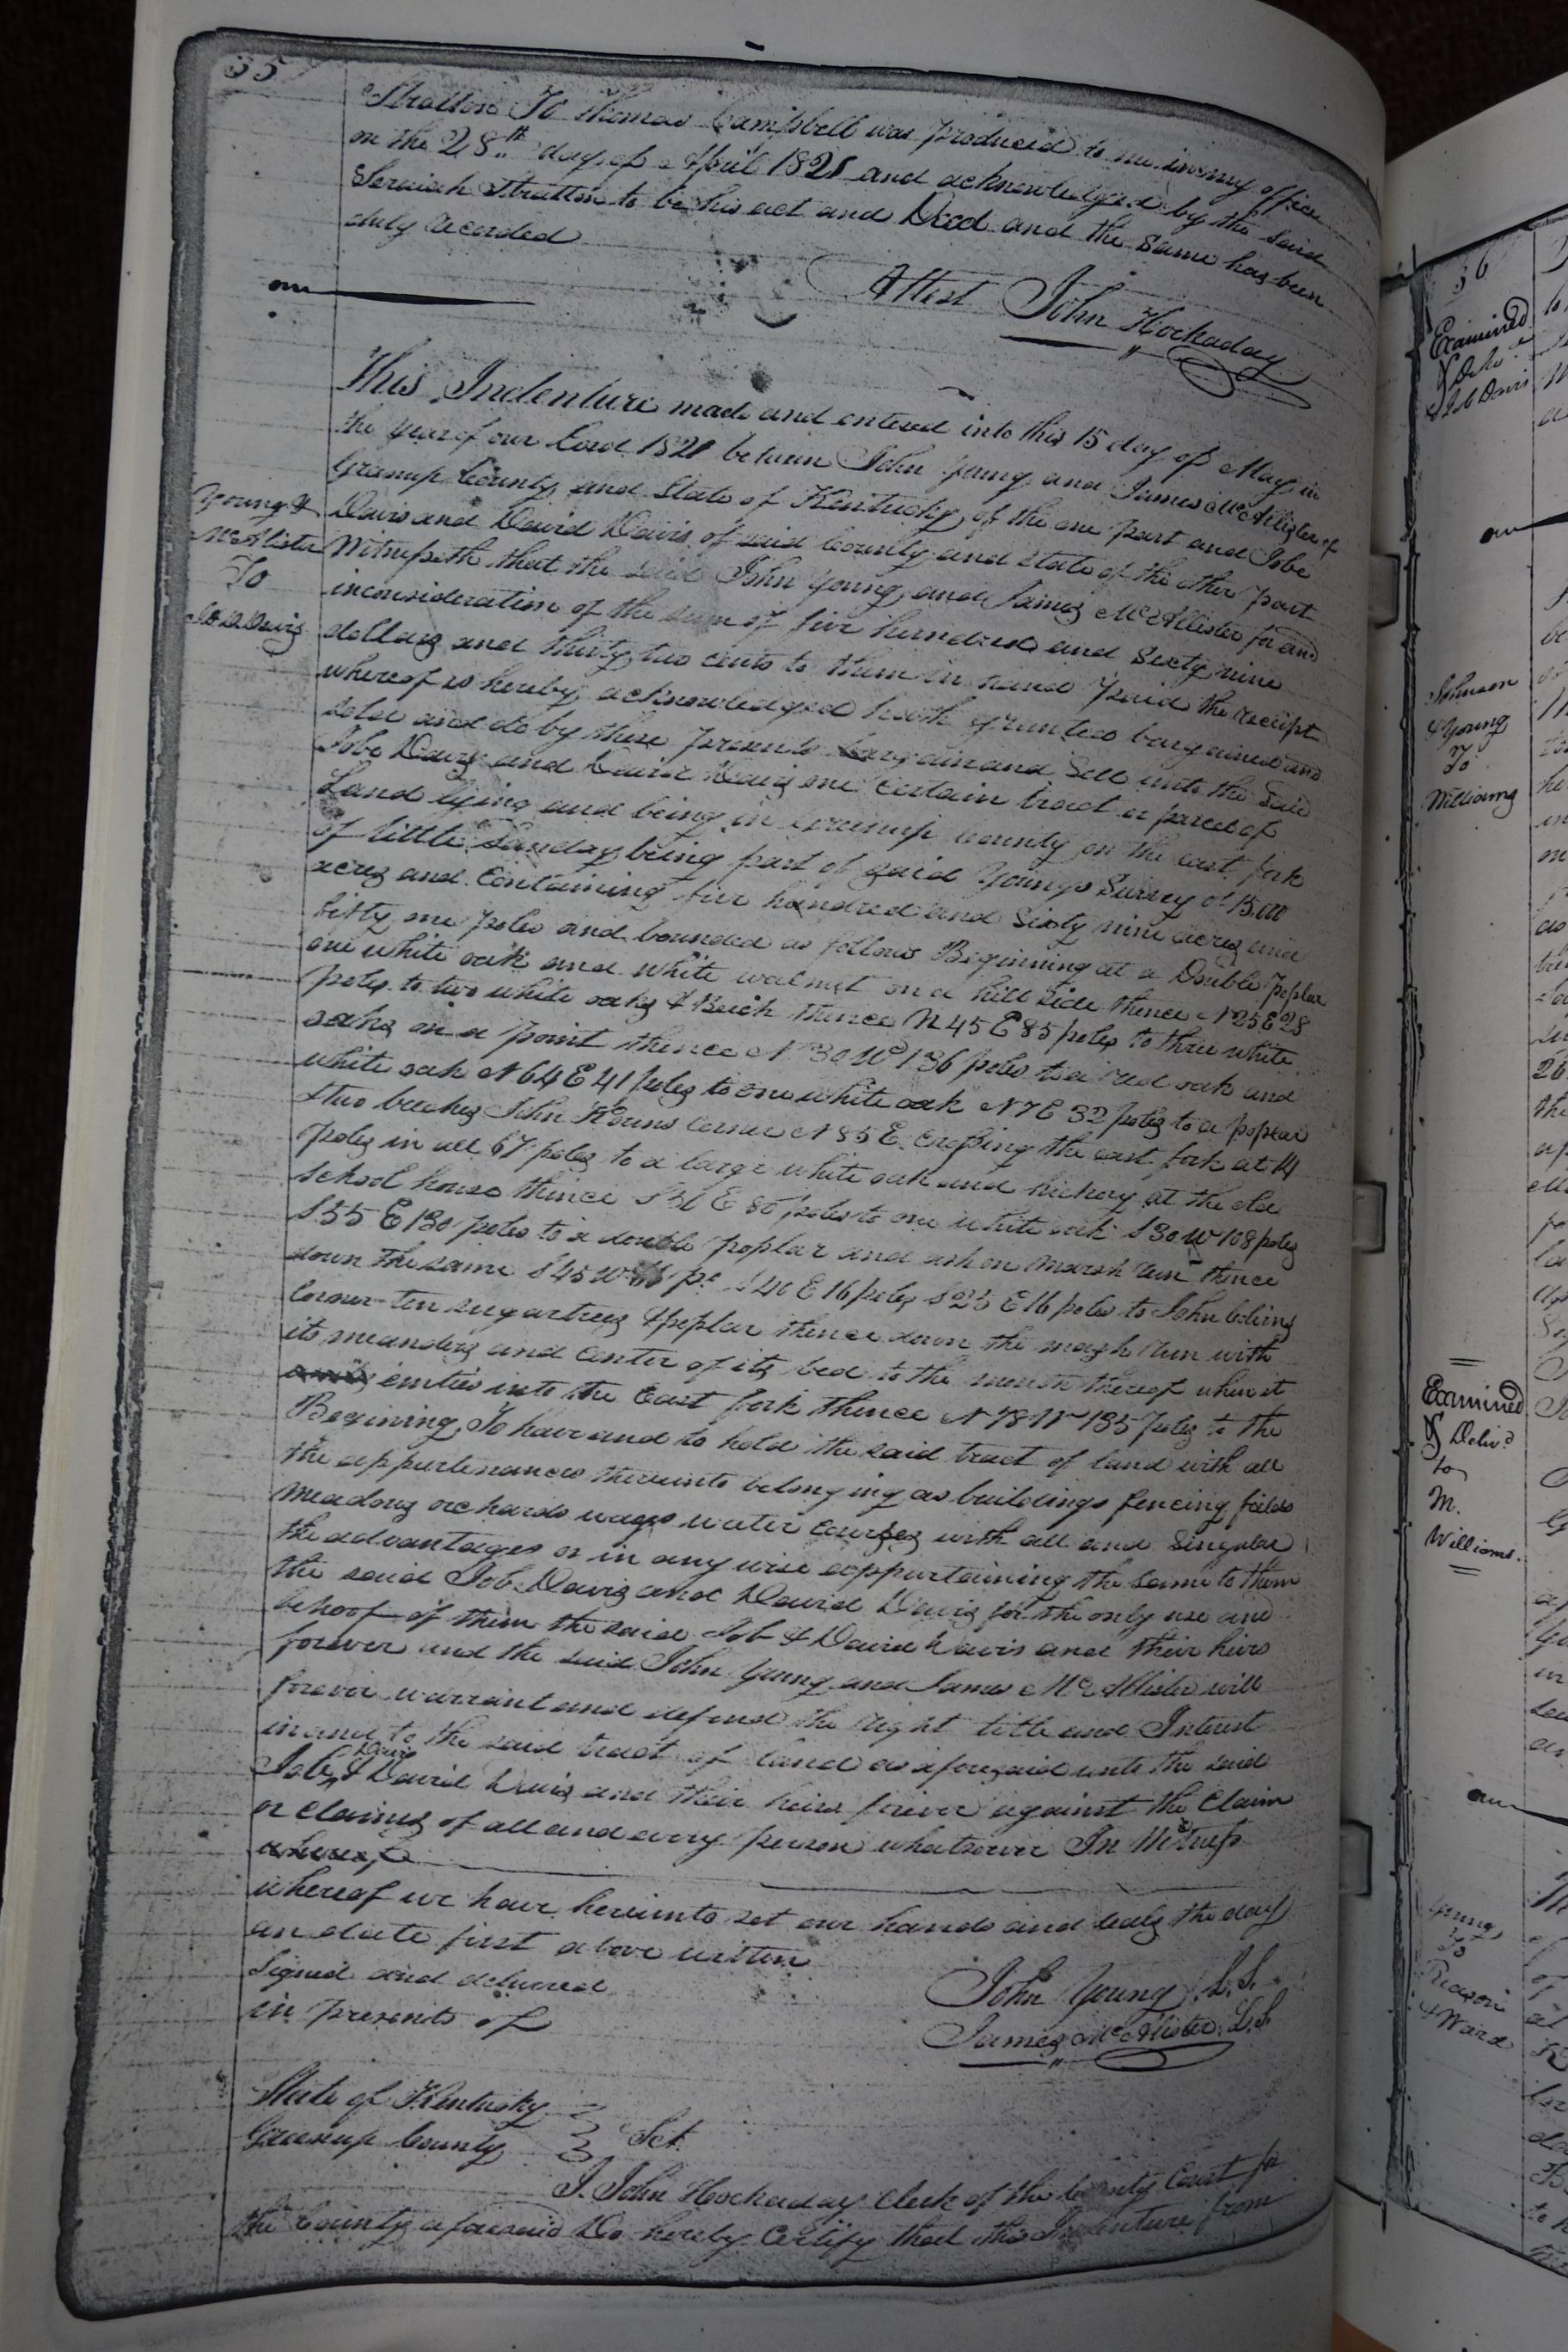 35
Stratton To Thomas Campbell was produced to me in my office
on the 28th day of April 1821 and acknowledged by the said
Seraiah Stratton to be his act and Deed and the same has been
duly recorded
Attest John Hockaday
This Indenture made and entered into this 15 day of May in
the year of our Lord 1821 between John Young and James McAllister of
Greenup County and State of Kentucky of the one part and Jobe
Young &
McAllister
To
J & D Davis
Davis and David Davis of said County and State of the other part
Witnesseth that the said John Young and James McAllister for and
inconsideration of the sum of five hundred and Sixty nine
dollars and thirty two cents to them in hand paid the receipt
whereof is hereby acknowledged hath granted bargained and
sold and do by these presents bargain and Sell unto the said
Jobe Davis and David Davis one Certain tract or parcel of
Land lying and being in Greenup County on the east fork
of little Sanday being part of said Youngs Survey of 15,000
acres and Containing five hundred and Sixty nine acres and
fifty one poles and bounded as follows Beginning at a Double poplar
one white oak and white walnut on a hill side thence N25E 28
poles to two white oaks & Beich thence N45E 85 poles to three white
oaks on a point thence N30W 136 poles to a red oak and
white oak N64E 41 poles to one white oak N7E 32 poles to a poplar
& two beeches John Kouns Corner N85E Crossing the east fork at 14
poles in all 67 poles to a large white oak and hickory at the old
school house thence S36E 80 poles to one white oak S30W 108 poles
S55E 130 poles to a double poplar and ash on marsh run thence
down the same S45W po S40E 16 poles S25E 16 poles to John
Corner ten sugartrees & poplar thence down the marsh run with
its meanders and Center of its bed to the mouth thereof when it
emties into the East fork thence N78W 135 poles to the
Begining To have and to hold the said tract of land with all
the appurtenances thereunto belonging as buildings fencing fields
meadows orchards ways water Courses with all and Singular
the advantages or in any wise appurtaining the same to them
the said Job Davis and David Davis for the only use and
behoof of them the said Job & David Davis and their heirs
forever and the said John Young and James McAllister will
forever warrant and defend the right title and Interest
in and to the said tract of land as aforesaid unto the said
Davis
Job & David Davis and their heirs forever against the Claim
or Claims of all and every person whatsoever In Witness
whereof
whereof we have hereunto set our hands and seals the day
an date first above written
Signed and delivered
in presents of
John Young L.S.
James McAllister L.S
State of Kentucky
Greenup County
Sct.
I. John Hockaday Clerk of the County Court for
the County aforesaid Do hereby Certify that this Indenture from
36
Examined
& Delvd
Job Davis
Johnson
& Young
To
Williams
Examined
& Delvd
to
M.
Williams.
Young
To
Reason
& Ward